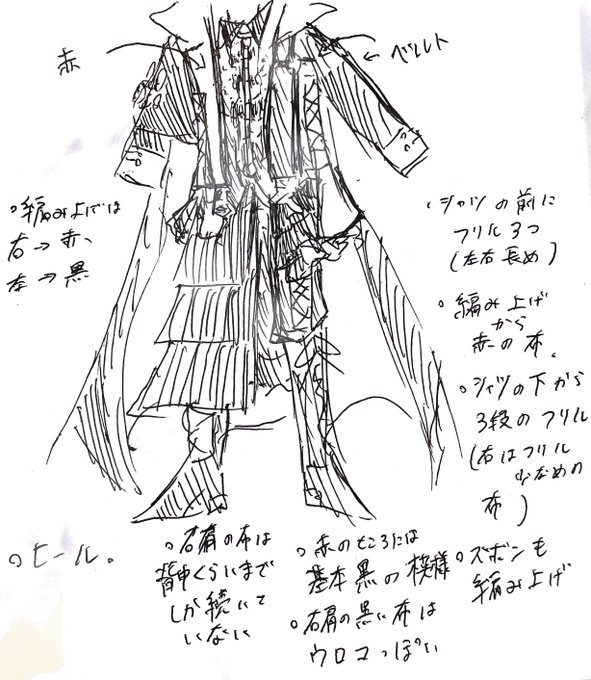 赤
← ベルト
○編み上げは
右→赤、
左→黒
・シャツの前に
フリル3つ
(左右長め)
○編み上げ
から
赤の布。
○シャツの下から
3段のフリル
(右はフリル
少なめの
布)
○ズボンも
編み上げ
○ヒール。
○右肩の布は
背中くらいまで
しか続いて
いない
○赤のところには
基本黒の模様
○右肩の黒い布は
ウロコっぽい